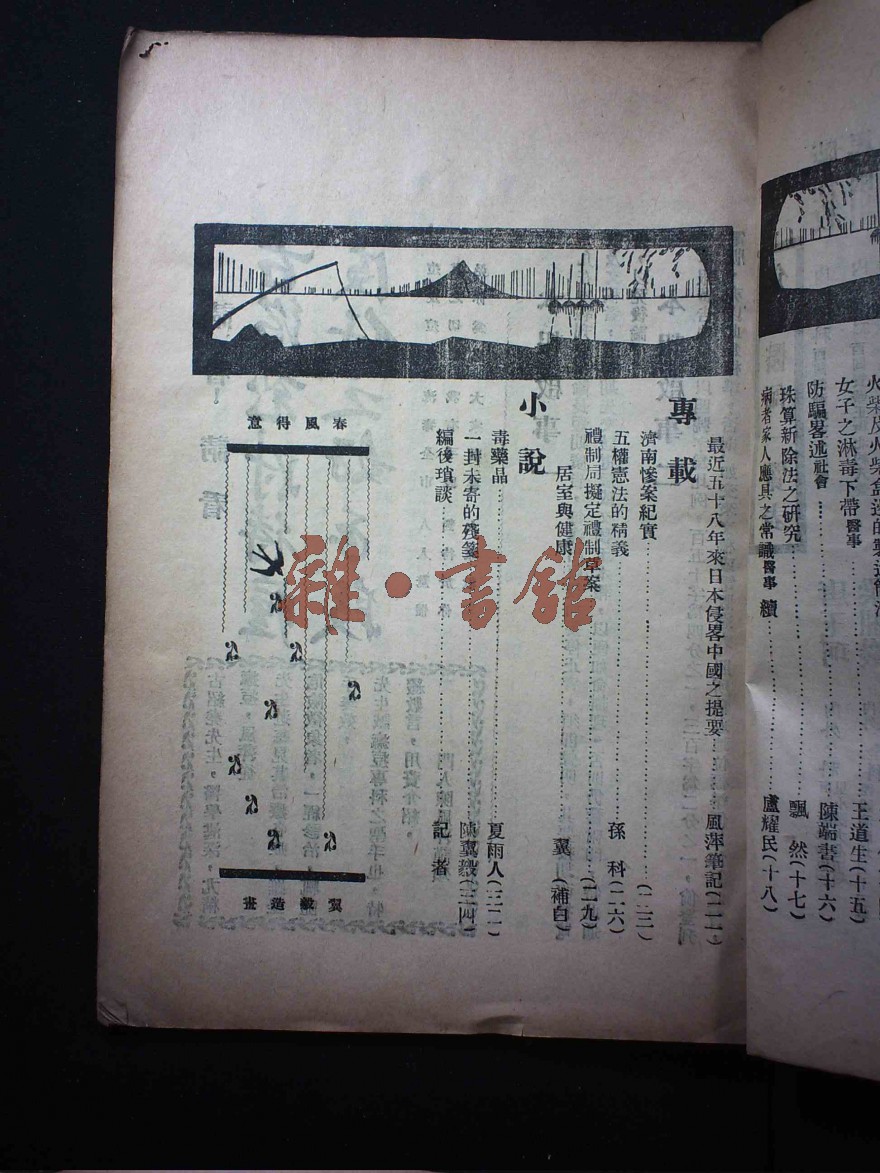 女子之淋毒下帶醫事……王道生(十五)
防騙畧述社會……陳端書(十六)
珠算新除法之研究……飄然(十七)
病者家人應具之常識醫事續……盧耀民(十八)
專載
最近五十八年來日本侵畧中國之提要……風萍筆記(二一)
濟南慘案紀實……(二二)
五權憲法的精義……孫科(二六)
禮制局擬定禮制草案……(二九)
居室與健康……翼(補白)
小說
毒藥品……夏雨人(三二)
一封未寄的殘箋……陳翼毅(三四)
編後瑣談……記者
春風得意
翼毅造畫
雜·書館